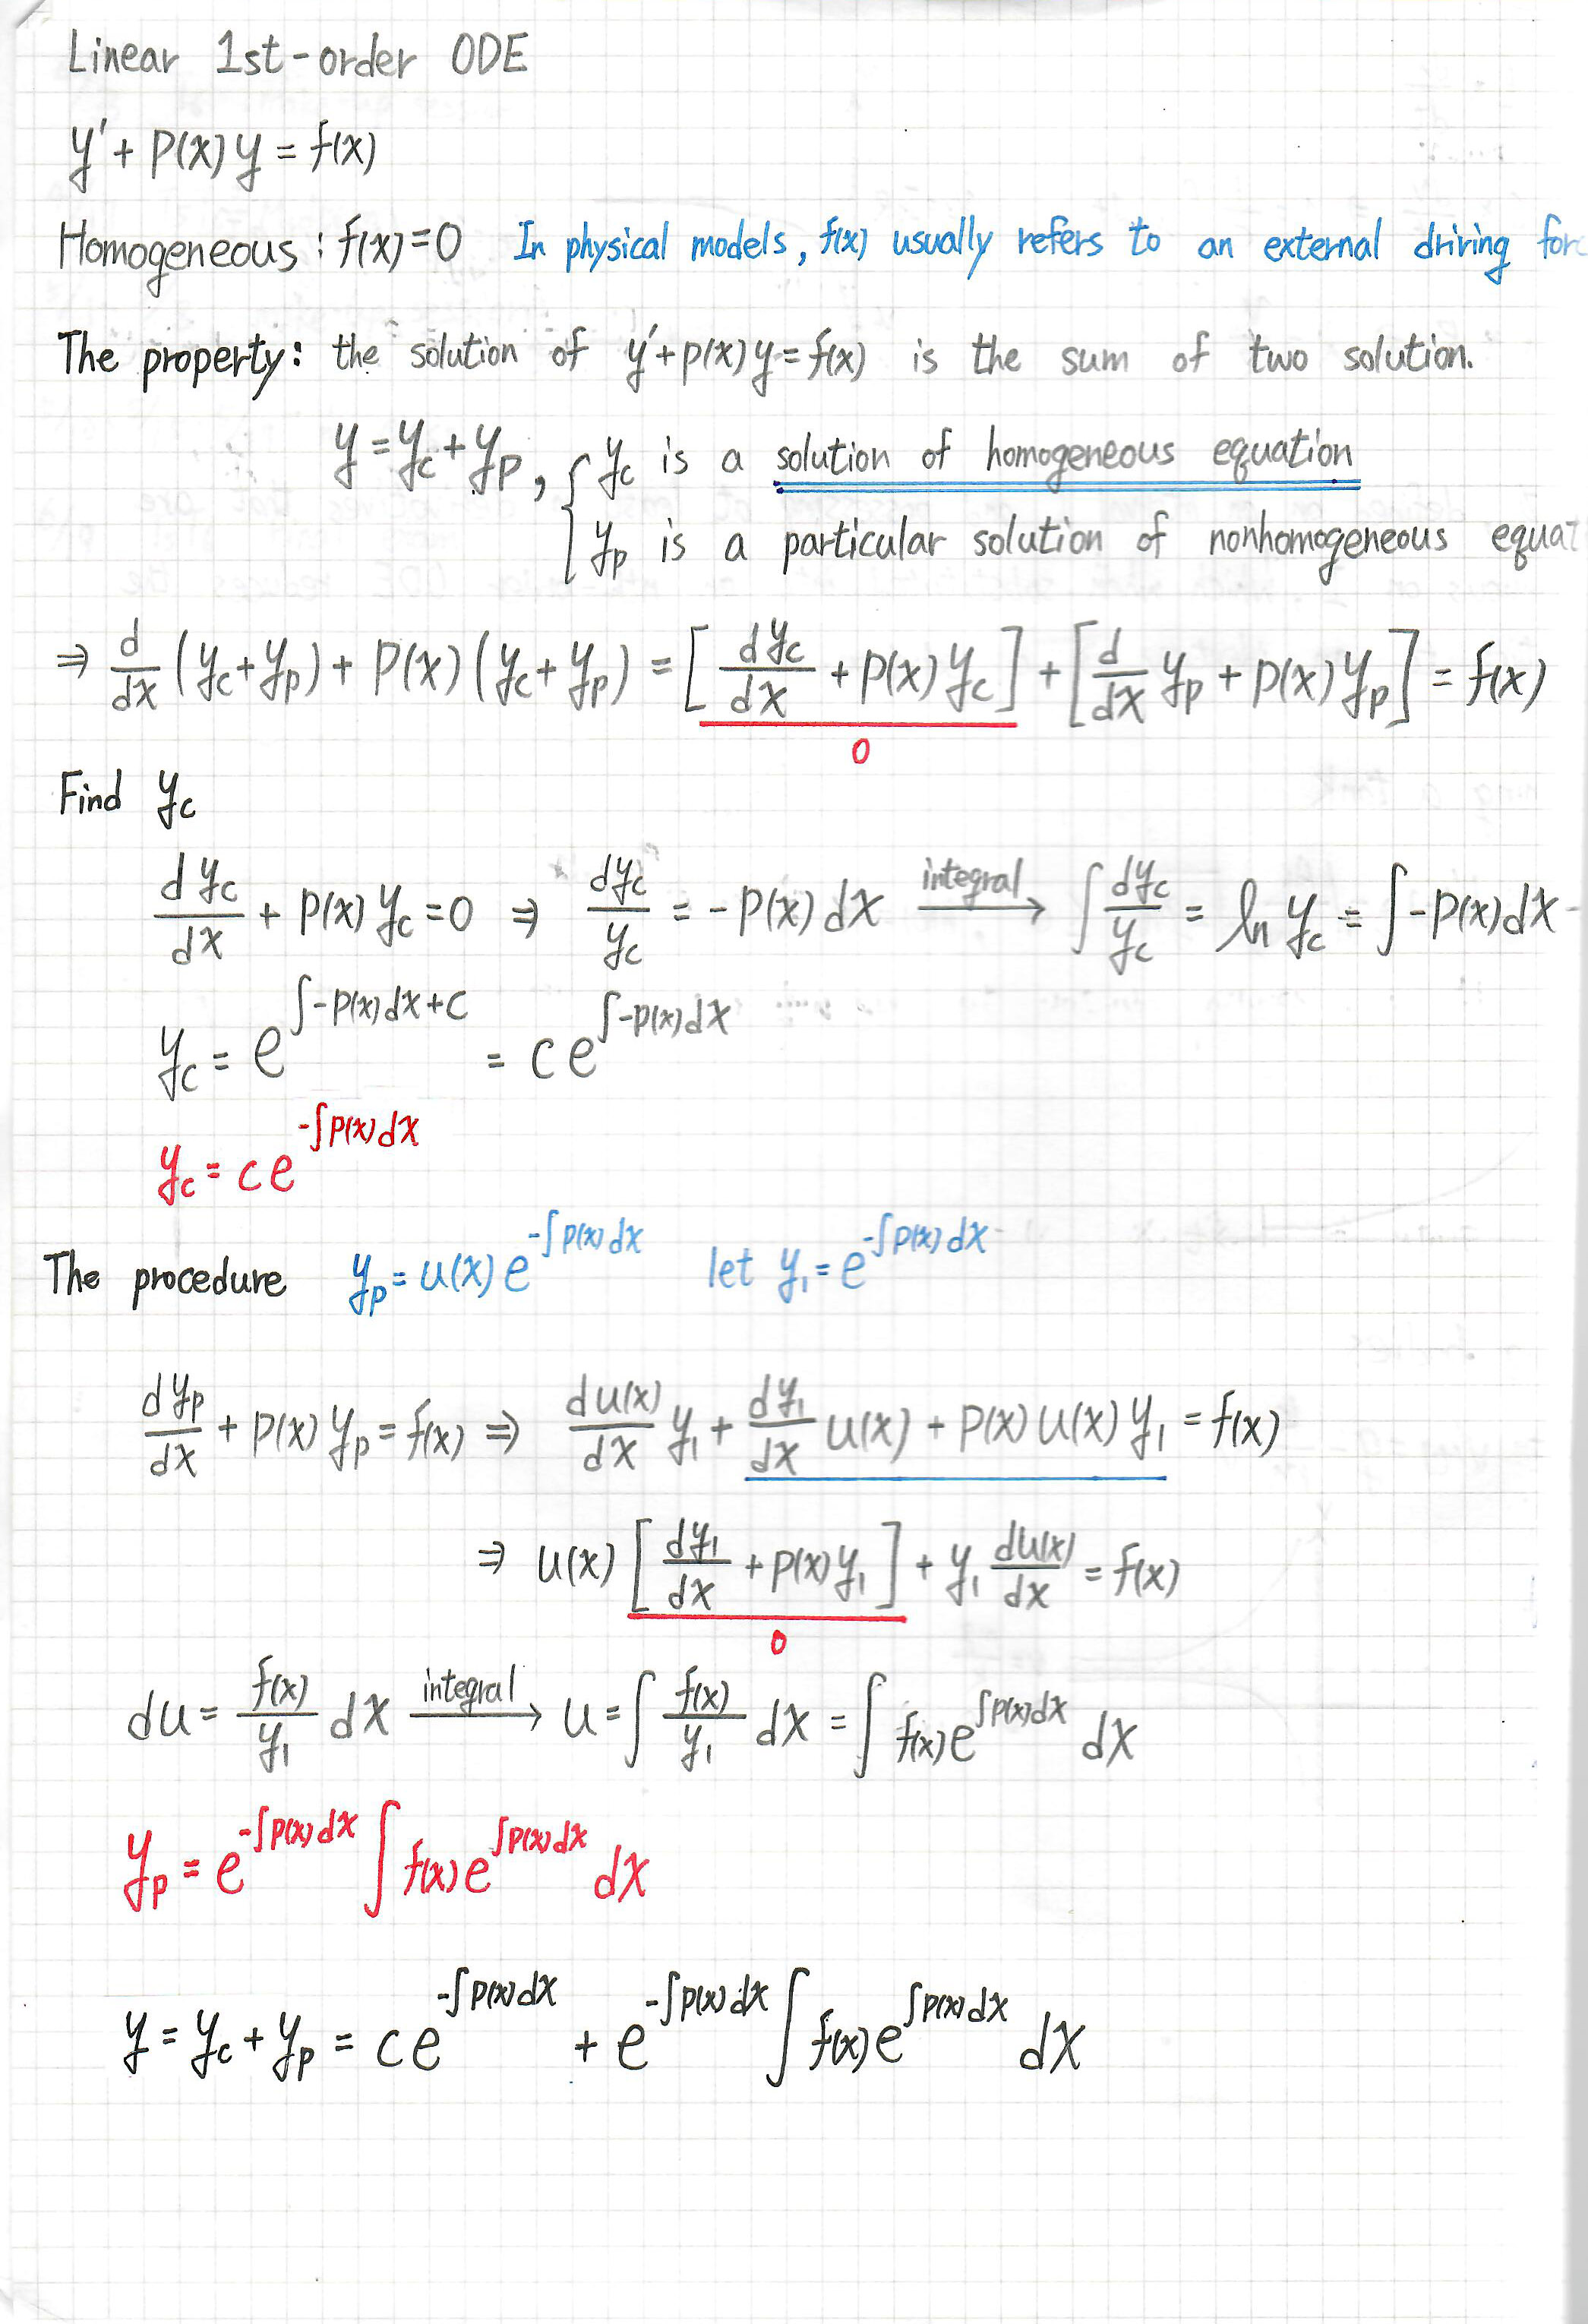 Linear 1st-order ODE
y' + P(x) y = f(x)
Homogeneous : f(x) = 0 In physical models, f(x) usually refers to an external driving
The property: the solution of y' + p(x) y = f(x) is the sum of two solution.
y = y_c + y_p, { y_c is a solution of homogeneous equation
y_p is a particular solution of nonhomogeneous
⇒ d/dx (y_c + y_p) + P(x) (y_c + y_p) = [dy_c/dx + P(x) y_c] + [d/dx y_p + P(x) y_p] = f(x)
0
Find y_c
dy_c/dx + P(x) y_c = 0 ⇒ dy_c/y_c = -P(x) dx integral→ ∫ dy_c/y_c = ln y_c = ∫ -P(x) dx
y_c = e^{∫-P(x)dx + c} = c e^{∫-P(x)dx}
y_c = c e^{-∫P(x)dx}
The procedure y_p = u(x) e^{-∫P(x)dx} let y_1 = e^{-∫P(x)dx}
dy_p/dx + P(x) y_p = f(x) ⇒ du(x)/dx y_1 + dy_1/dx u(x) + P(x) u(x) y_1 = f(x)
⇒ u(x) [dy_1/dx + P(x) y_1] + y_1 du(x)/dx = f(x)
0
du = f(x)/y_1 dx integral→ u = ∫ f(x)/y_1 dx = ∫ f(x) e^{∫P(x)dx} dx
y_p = e^{-∫P(x)dx} ∫ f(x) e^{∫P(x)dx} dx
y = y_c + y_p = c e^{-∫P(x)dx} + e^{-∫P(x)dx} ∫ f(x) e^{∫P(x)dx} dx